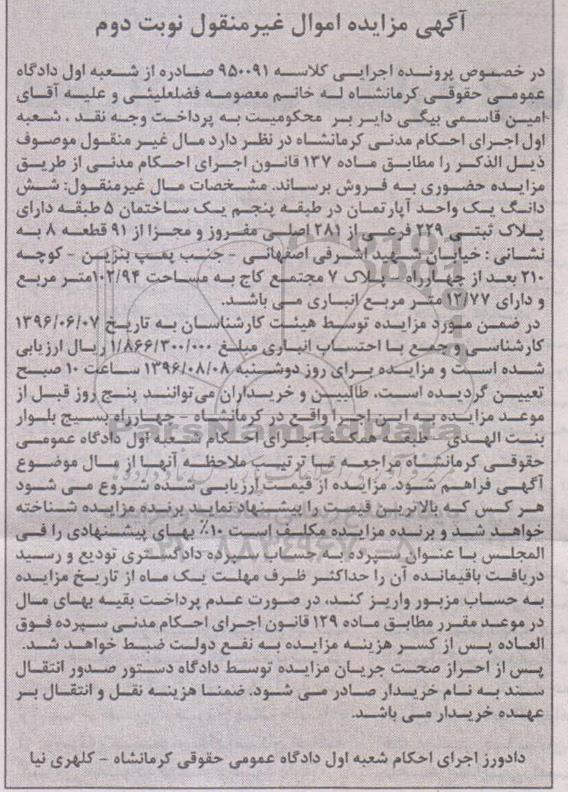 آگهی مزایده اموال غیرمنقول نوبت دوم
در خصوص پرونده اجرایی کلاسه ۹۵۰۰۹۱ صادره از شعبه اول دادگاه
عمومی حقوقی کرمانشاه له خانم معصومه فضلعلیئی و علیه آقای
امین قاسمی بیگی دایر بر محکومیت به پرداخت وجه نقد ، شعبه
اول اجرای احکام مدنی کرمانشاه در نظر دارد مال غیر منقول موصوف
ذیل الذکر را مطابق ماده ۱۳۷ قانون اجرای احکام مدنی از طریق
مزایده حضوری به فروش برساند. مشخصات مال غیرمنقول: شش
دانگ یک واحد آپارتمان در طبقه پنجم یک ساختمان ۵ طبقه دارای
پلاک ثبتی ۲۲۹ فرعی از ۲۸۱ اصلی مفروز و مجزا از ۹۱ قطعه ۸ به
نشانی : خیابان شهید اشرفی اصفهانی - جنب پمپ بنزین - کوچه
۲۱۰ بعد از چهارراه - پلاک ۷ مجتمع کاج به مساحت ۱۰۲/۹۴ متر مربع
و دارای ۱۲/۷۷ متر مربع انباری می باشد.
در ضمن مورد مزایده توسط هیئت کارشناسان به تاریخ ۱۳۹۶/۰۶/۰۷
کارشناسی و جمع با احتساب انباری مبلغ ۱/۸۶۶/۳۰۰/۰۰۰ ریال ارزیابی
شده است و مزایده برای روز دوشنبه ۱۳۹۶/۰۸/۰۸ ساعت ۱۰ صبح
تعیین گردیده است. طالبین و خریداران می‌توانند پنج روز قبل از
موعد مزایده به این اجرا واقع در کرمانشاه - چهارراه بسیج بلوار
بنت الهدی - طبقه همکف اجرای احکام شعبه اول دادگاه عمومی
حقوقی کرمانشاه مراجعه تا ترتیب ملاحظه آنها از مال موضوع
آگهی فراهم شود. مزایده از قیمت ارزیابی شده شروع می شود
هر کس که بالاترین قیمت را پیشنهاد نماید برنده مزایده شناخته
خواهد شد و برنده مزایده مکلف است ۱۰٪ بهای پیشنهادی را فی
المجلس با عنوان سپرده به حساب سپرده دادگستری تودیع و رسید
دریافت باقیمانده آن را حداکثر ظرف مهلت یک ماه از تاریخ مزایده
به حساب مزبور واریز کند، در صورت عدم پرداخت بقیه بهای مال
در موعد مقرر مطابق ماده ۱۲۹ قانون اجرای احکام مدنی سپرده فوق
العاده پس از کسر هزینه مزایده به نفع دولت ضبط خواهد شد.
پس از احراز صحت جریان مزایده توسط دادگاه دستور صدور انتقال
سند به نام خریدار صادر می شود. ضمنا هزینه نقل و انتقال بر
عهده خریدار می باشد.
دادورز اجرای احکام شعبه اول دادگاه عمومی حقوقی کرمانشاه - کلهری نیا
ParsNamadData